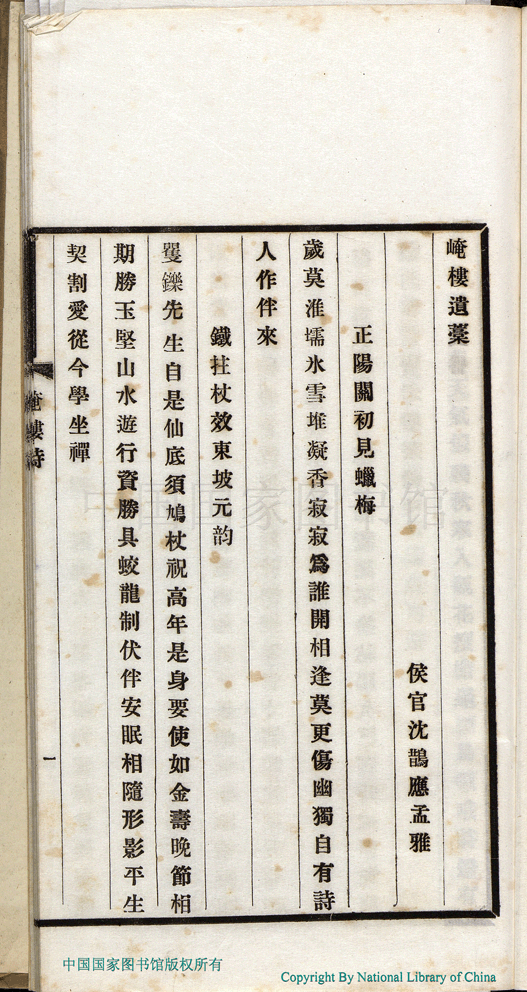 崦樓遺藁
侯官沈鵲應孟雅
正陽關初見蠟梅
歲莫淮壖氷雪堆凝香寂寂爲誰開相逢莫更傷幽獨自有詩
人作伴來
鐵拄杖效東坡元韵
矍鑠先生自是仙底須鳩杖祝高年是身要使如金壽晚節相
期勝玉堅山水遊行資勝具蛟龍制伏伴安眠相隨形影平生
契割愛從今學坐禪
崦樓詩
一
中国国家图书馆
中国国家图书馆版权所有
Copyright By National Library of China